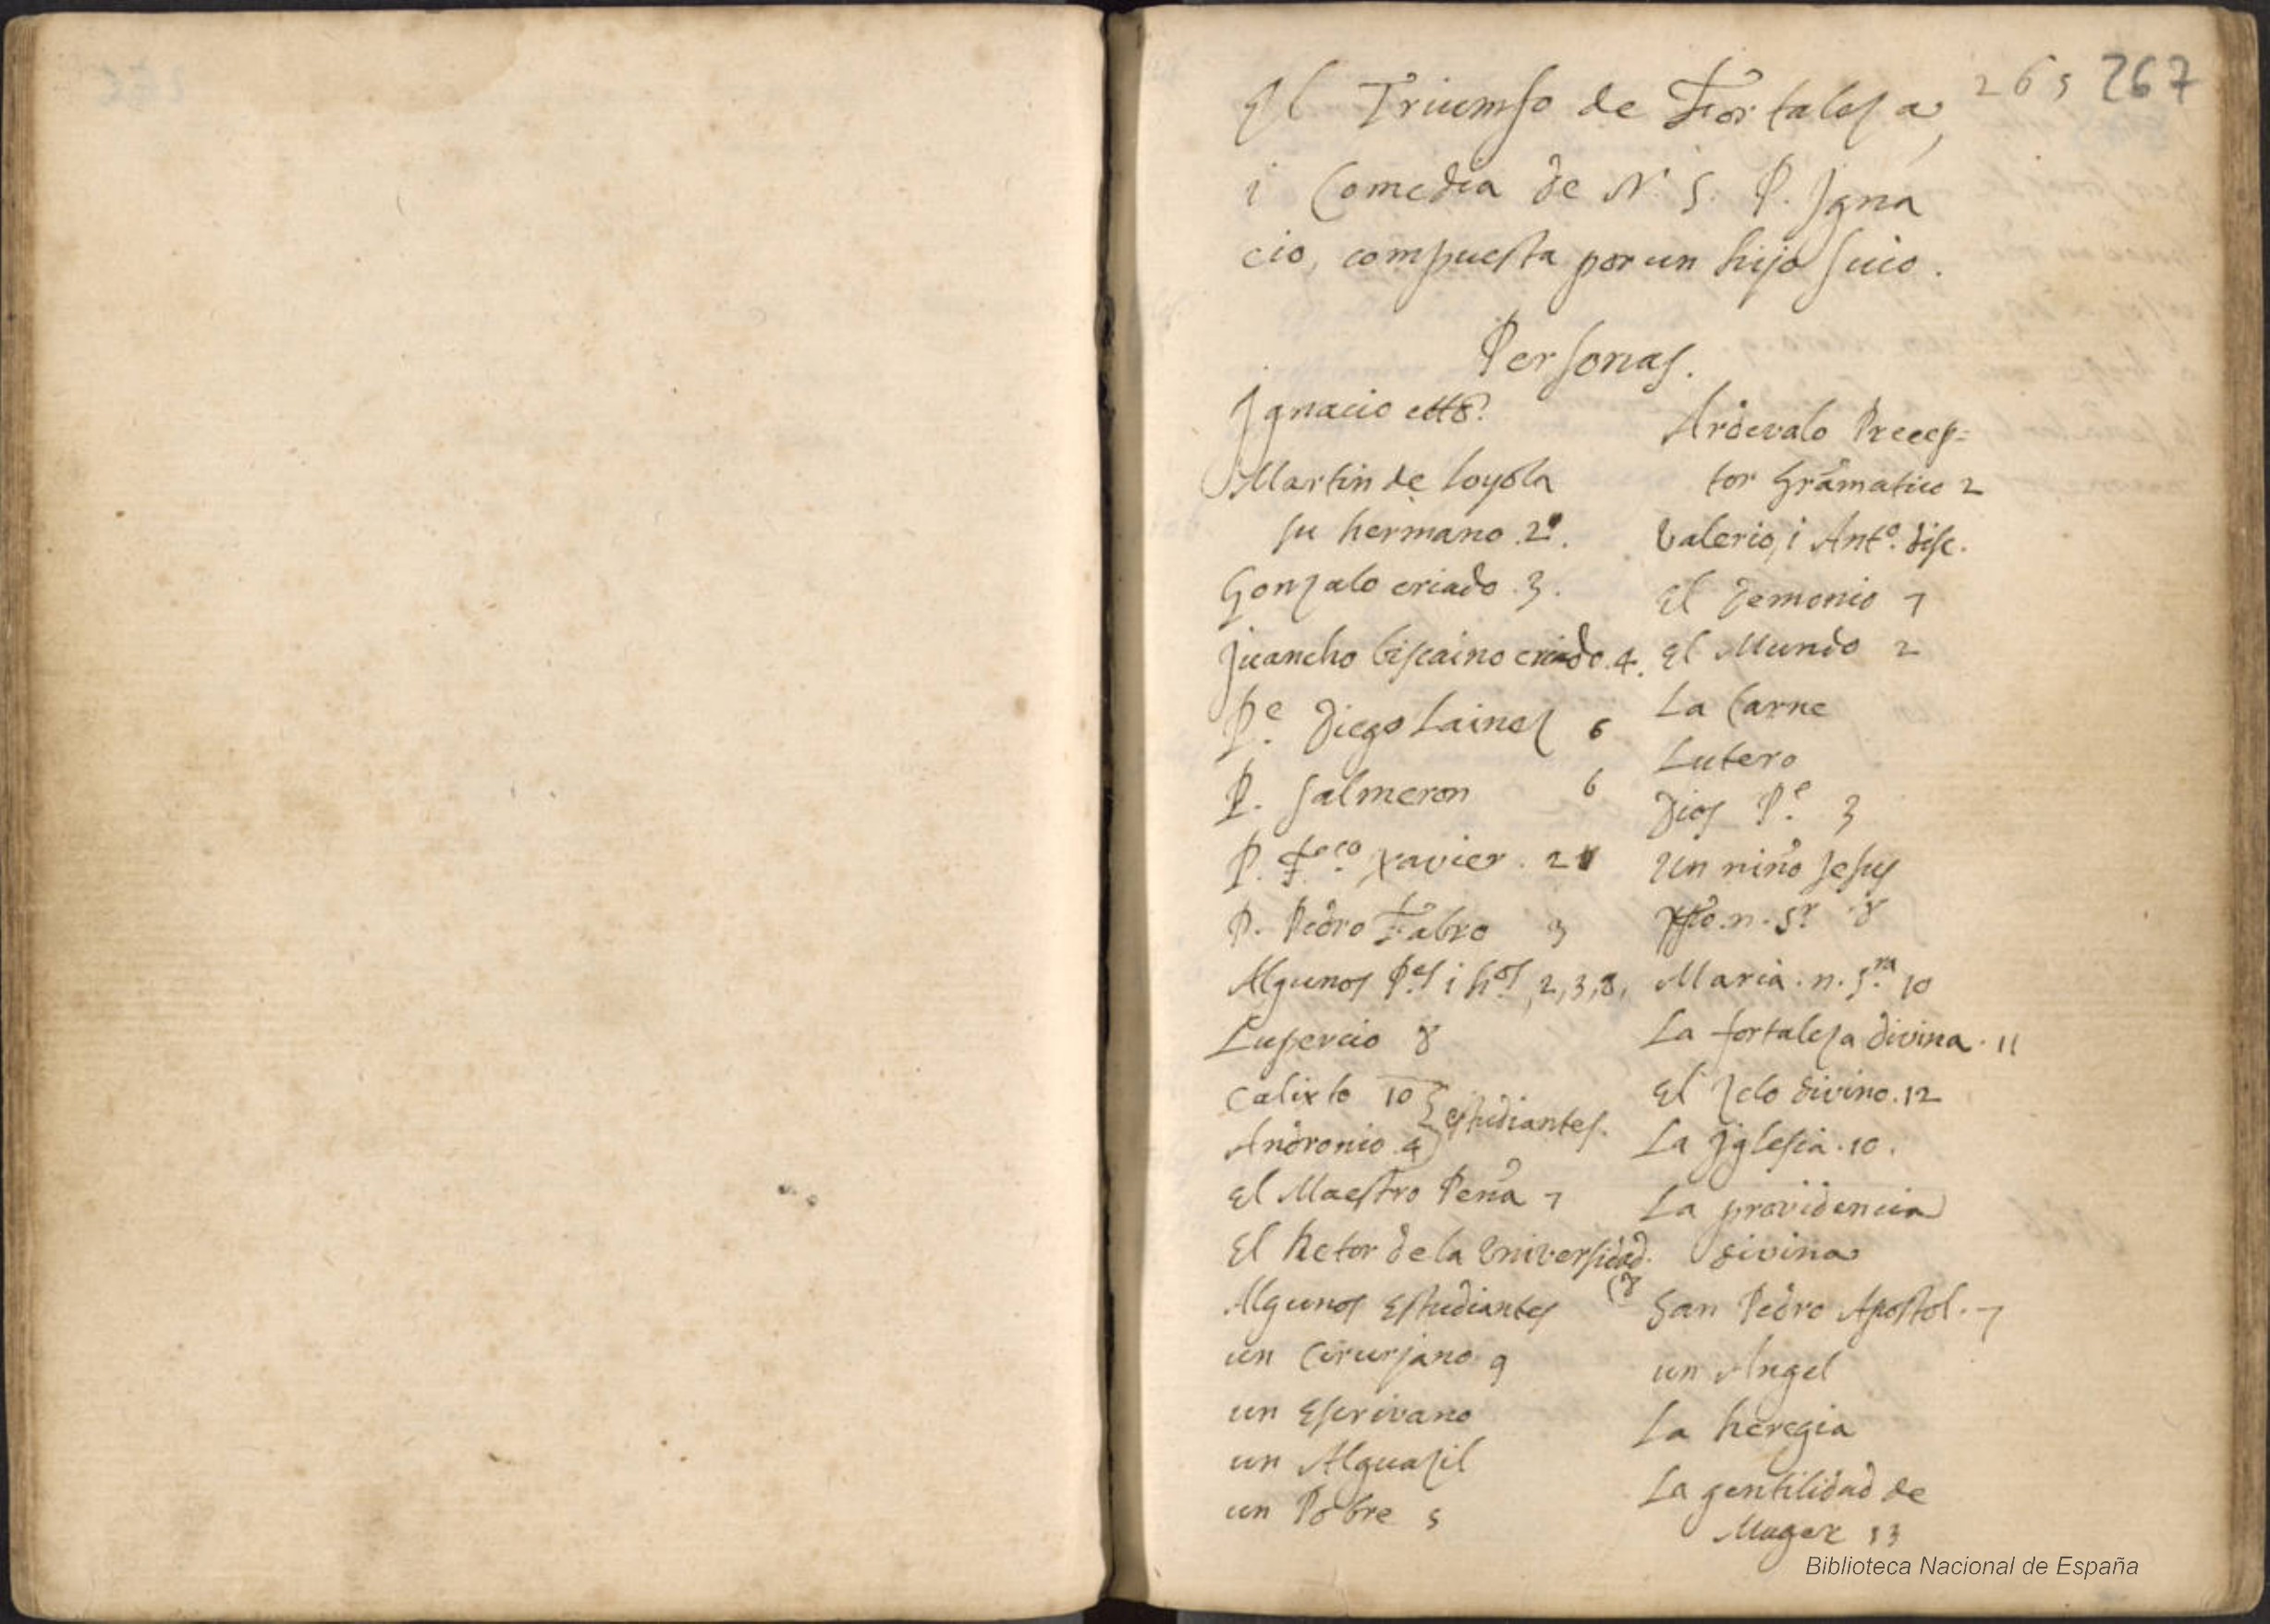 265 267
El Triumfo de Fortaleza,
i Comedia de N. S. P. Igna
cio, compuesta por un hijo suio.
Personas.
Ignacio
Martin de Loyola
su hermano. 2º.
Gonzalo criado. 3.
Juancho biscaino criado. 4.
Pe. Diego Lainez 6
P. Salmeron 6
P. Fco. Xavier. 2
P. Pedro Fabro 3
Algunos Pes. i hos., 2, 3, 8,
Lupercio 8
Calixto 10
Andronio. 4 } estudiantes.
El Maestro Peña 7
El Retor de la Universidad.
(8
Algunos Estudiantes
un Cirurjano 9
un Escrivano
un Alguazil
un Pobre 5
Ardevalo Precep=
tor Gramatico 2
Valerio, i Antº. disc.
El Demonio 7
El Mundo 2
La Carne
Lutero
Dios Pe. 3
Un niño Jesus
Xpo. n. Sr. 8
Maria. n. Sra. 10
La fortaleza divina. 11
El Zelo divino. 12
La Yglesia. 10.
La providencia
divina
San Pedro Apostol. 7
un Angel
La heregia
La gentilidad de
Muger 13
Biblioteca Nacional de España